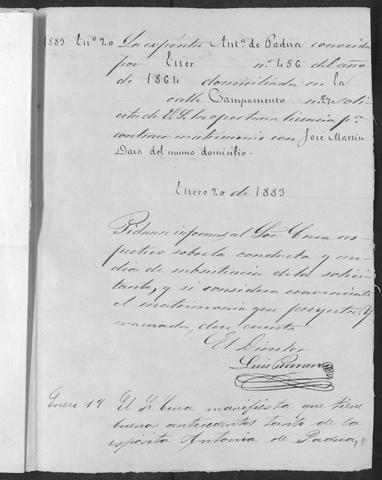 1883 En.º 20 La expósita Ant.ª de Padua conocida
por Ester nº 456 del año
de 1864 domiciliada en la
calle Campamento nº soli
cita de V.S. la oportuna licencia p.ª
contraer matrimonio con José Martin
Daza del mismo domicilio.
Enero 20 de 1883
Pidase informe al Sor Cura res
pectivo sobre la conducta y me
dios de subsistencia de la solici
tante, y si considera conveniente
el matrimonio que proyecta, y
evacuado, dese cuenta
El Director
Luis Romero
Enero 19 El Sr Cura manifiesta que tiene
buenos antecedentes tanto de la
expósita Antonia de Padua,